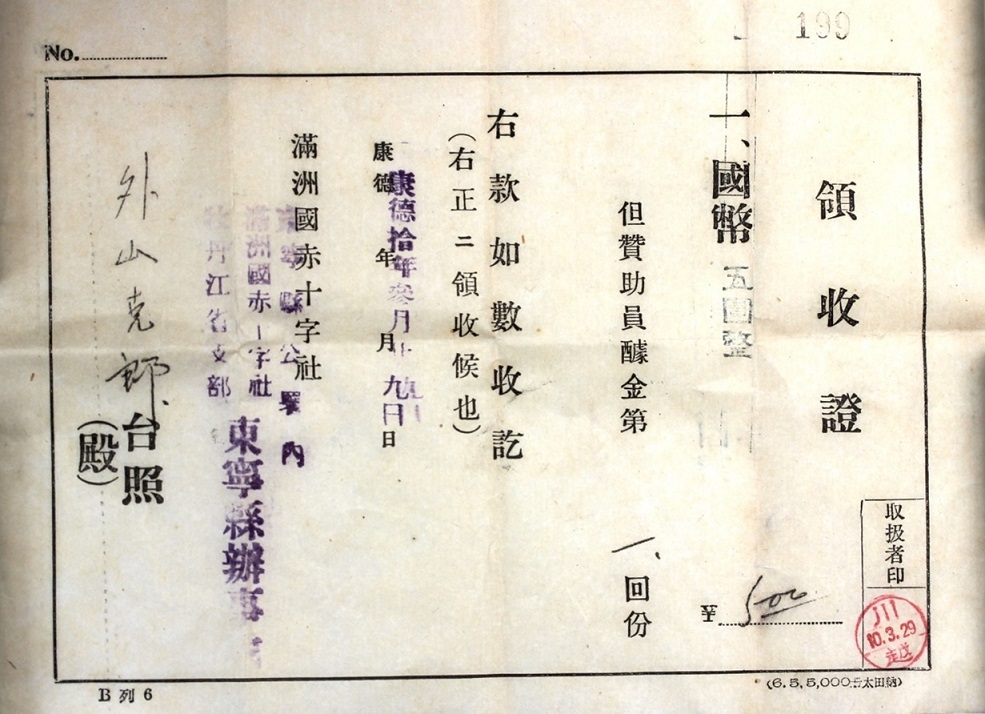 No.
199
領收證
一、國幣 五圓整
¥ 5.00
但贊助員醵金第一、回份
右款如數收訖
(右正ニ領收候也)
康德 年 月 日
康德拾年參月 九日
滿洲國赤十字社
東寧縣公署內
滿洲國赤十字社
牡丹江省支部
東寧縣辦事
外山克郎 台照
(殿)
取扱者印
10.3.29
B列6
(6.5,5,000 太田納)